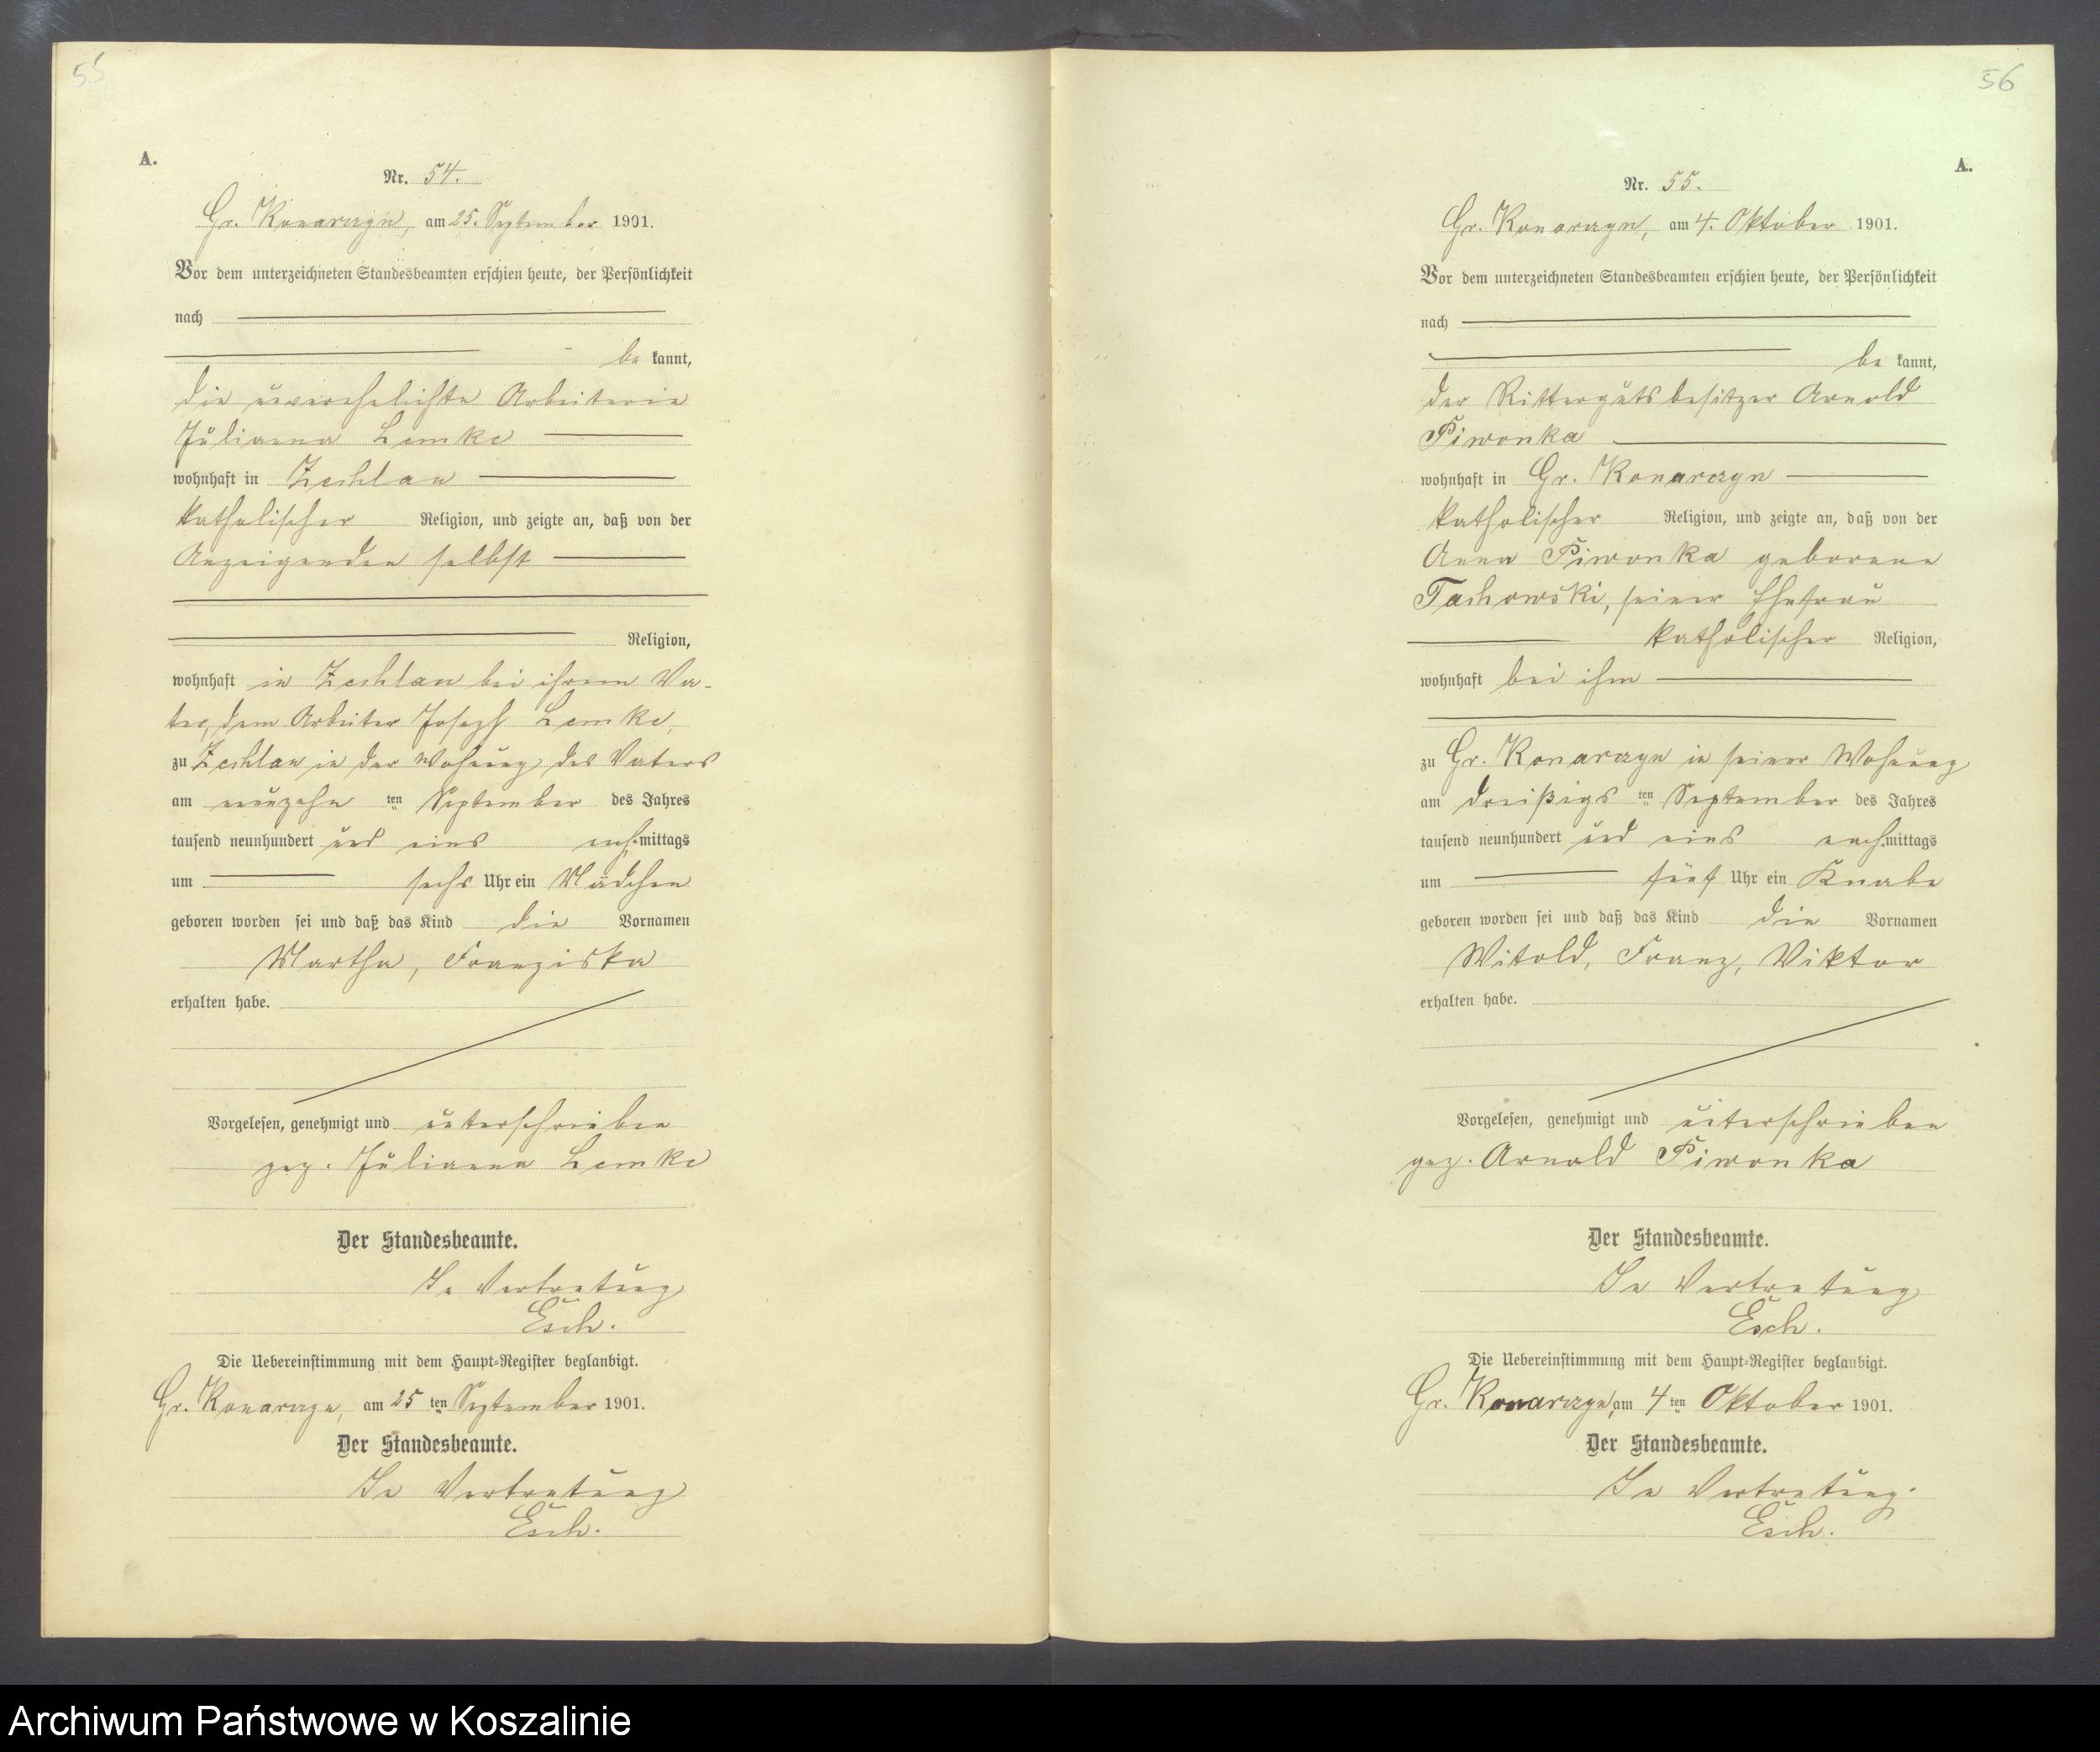 55
A.
Nr. 54.
Gr. Konarczyn, am 25. September 1901.
Vor dem unterzeichneten Standesbeamten erschien heute, der Persönlichkeit
nach
be kannt,
die unverehelichte Arbeiterin
Julianna Lemke
wohnhaft in Zechlau
katholischer Religion, und zeigte an, daß von der
Anzeigenden selbst
Religion,
wohnhaft in Zechlau bei ihrem Va-
ter, dem Arbeiter Joseph Lemke,
zu Zechlau in der Wohnung des Vaters
am neunzehn ten September des Jahres
tausend neunhundert und eins nach mittags
um sechs Uhr ein Mädchen
geboren worden sei und daß das Kind die Vornamen
Martha, Franziska
erhalten habe.
Vorgelesen, genehmigt und unterschrieben
gez. Julianna Lemke
Der Standesbeamte.
In Vertretung
Esch.
Die Uebereinstimmung mit dem Haupt-Register beglaubigt.
Gr. Konarczyn, am 25 ten September 1901.
Der Standesbeamte.
In Vertretung
Esch.
56
A.
Nr. 55.
Gr. Konarczyn, am 4. Oktober 1901.
Vor dem unterzeichneten Standesbeamten erschien heute, der Persönlichkeit
nach
be kannt,
der Rittergutsbesitzer Arnold
Piwonka
wohnhaft in Gr. Konarczyn
katholischer Religion, und zeigte an, daß von der
Anna Piwonka geborene
Tachowski, seiner Ehefrau
katholischer Religion,
wohnhaft bei ihm
zu Gr. Konarczyn in seiner Wohnung
am dreißigs ten September des Jahres
tausend neunhundert und eins nach mittags
um fünf Uhr ein Knabe
geboren worden sei und daß das Kind die Vornamen
Witold, Franz, Viktor
erhalten habe.
Vorgelesen, genehmigt und unterschrieben
gez. Arnold Piwonka
Der Standesbeamte.
In Vertretung
Esch.
Die Uebereinstimmung mit dem Haupt-Register beglaubigt.
Gr. Konarczyn, am 4 ten Oktober 1901.
Der Standesbeamte.
In Vertretung.
Esch.
Archiwum Państwowe w Koszalinie